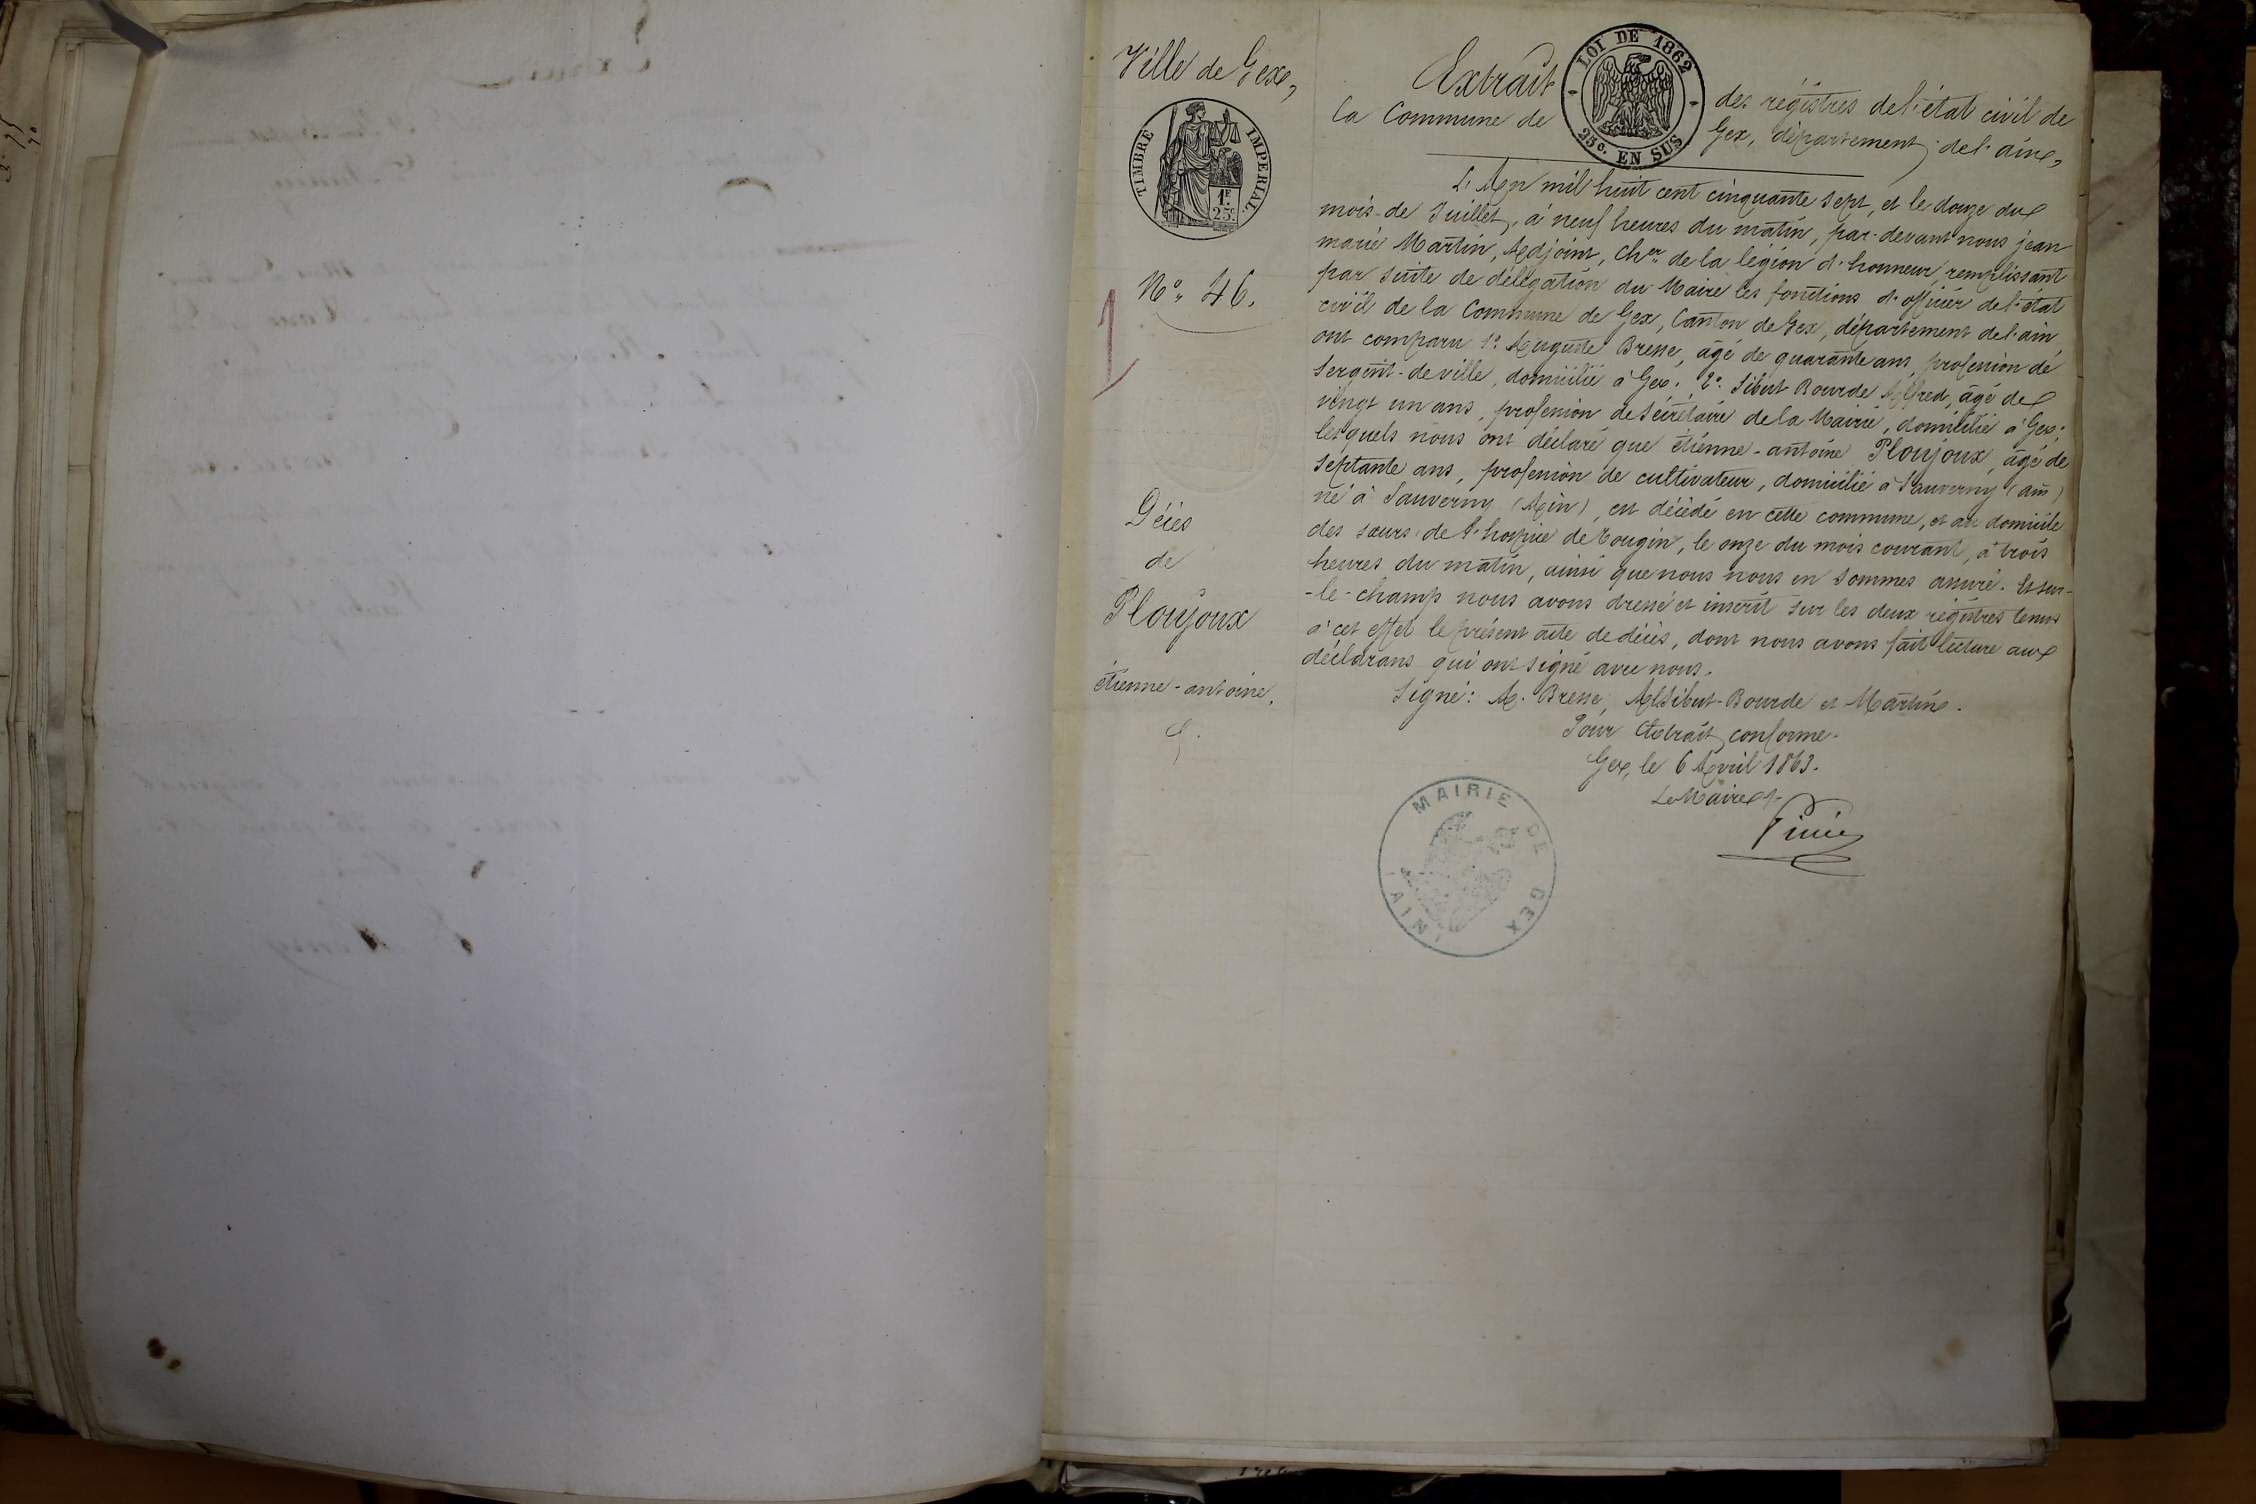 Ville de Gex,
TIMBRE IMPERIAL
1F.
25c.
N° 46.
1
Décès
de
Ploujoux
étienne-antoine.
Extrait des régistres de l'état civil de
LOI DE 1862
25c. EN SUS
la Commune de Gex, département de l'ain,
L'An mil huit cent cinquante sept, et le douze du
mois de Juillet, à neuf heures du matin, par-devant nous jean
marie Martin, Adjoint, Cher de la légion d'honneur remplissant
par suite de délégation du Maire les fonctions d'officier de l'état
civil de la Commune de Gex, Canton de Gex, département de l'ain
ont comparu 1° Auguste Bresse, âgé de quarante ans, profession de
Sergent-de ville, domicilié à Gex. 2° Sibut-Bourde Alfred, âgé de
vingt un ans, profession de Sécrétaire de la Mairie, domicilié à Gex;
lesquels nous ont déclaré que étienne-antoine Ploujoux, âgé de
septante ans, profession de cultivateur, domicilié à Sauverny (ain)
né à Sauverny (Ain), est décédé en cette commune, et au domicile
des sœurs de l'hospice de Tougin, le onze du mois courant, à trois
heures du matin, ainsi que nous nous en sommes assuré. Et sur-
-le-champ nous avons dressé et inscrit sur les deux régistres tenus
à cet effet le présent acte de décès, dont nous avons fait lecture aux
déclarans qui ont signé avec nous.
Signé: A. Bresse, A. Sibut-Bourde et Martin.
Pour Extrait conforme.
Gex, le 6 Avril 1863.
Le Maire
MAIRIE DE GEX
(AIN)